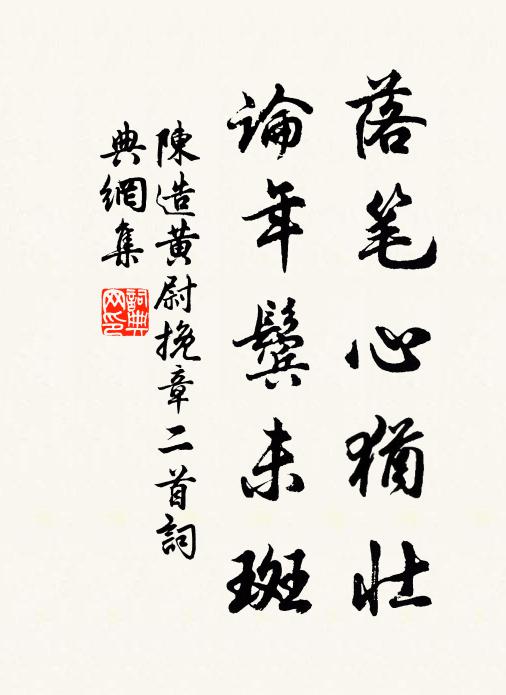 落笔心猶壯
論年鬢未斑
陳造黃尉挽章二首詞
典網集
詞典網印